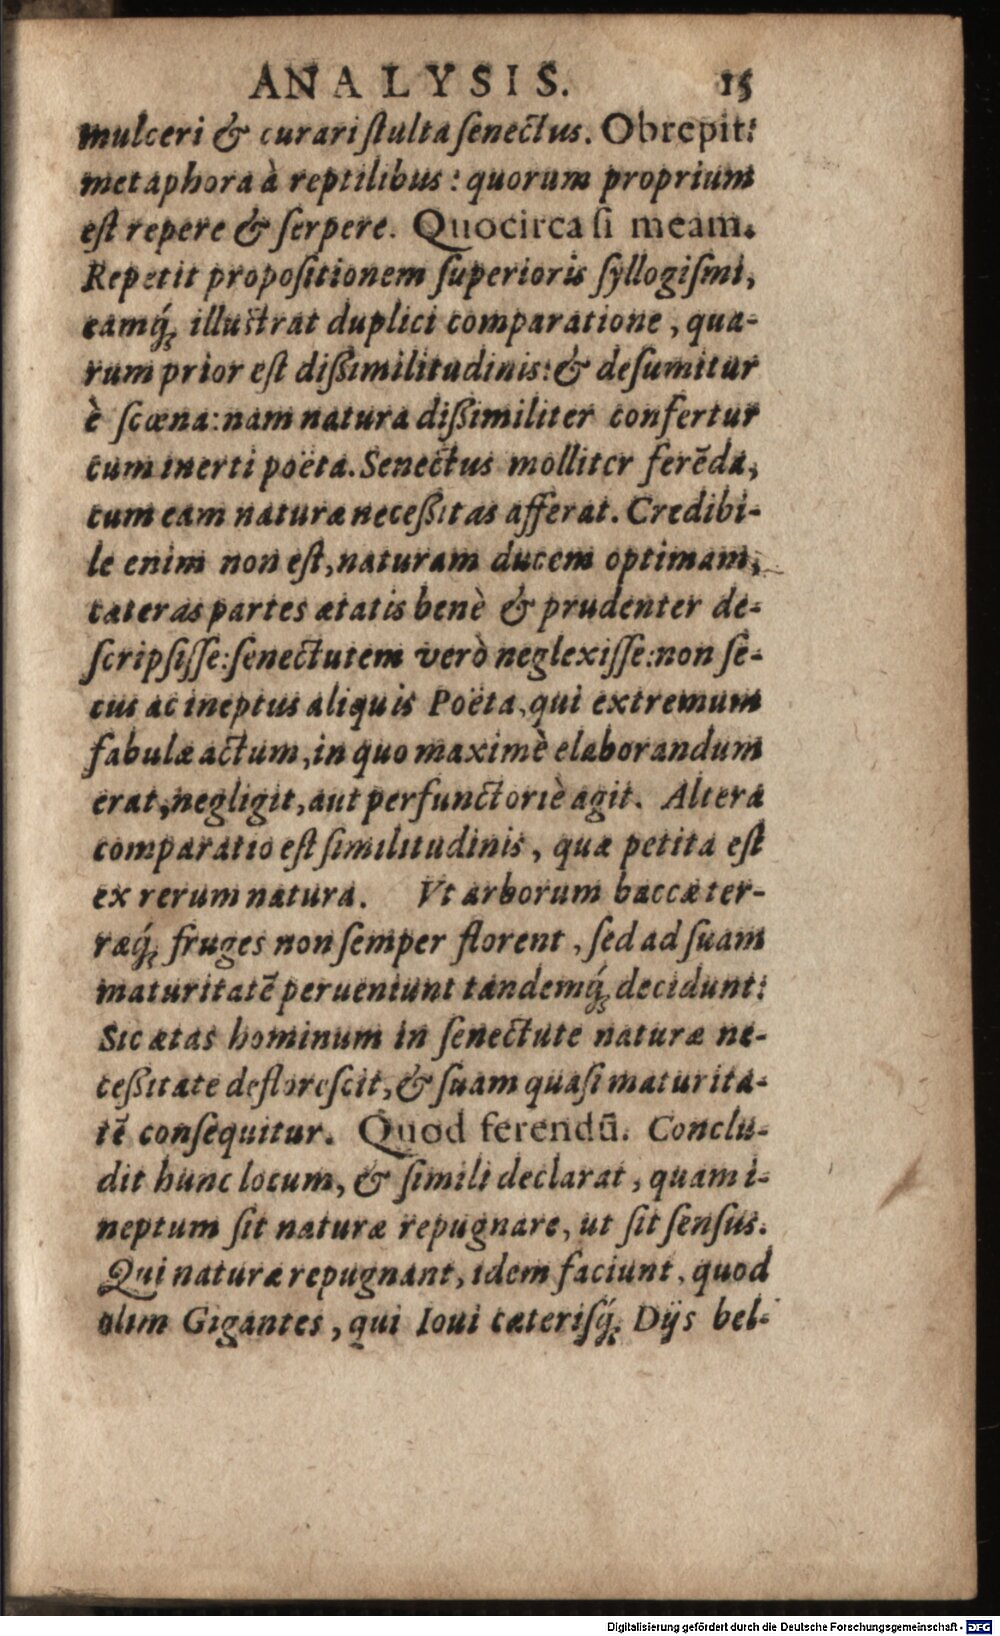 ANALYSIS. 15
mulceri & curari ſtulta ſenectus. Obrepit:
metaphora à reptilibus: quorum proprium
eſt repere & ſerpere. Quocirca ſi meam.
Repetit propoſitionem ſuperioris ſyllogiſmi,
eamq́; illuſtrat duplici comparatione, qua-
rum prior eſt dißimilitudinis: & deſumitur
è ſcœna: nam natura dißimiliter confertur
cum inerti poëta. Senectus molliter ferẽda,
cum eam naturæ neceßitas afferat. Credibi-
le enim non eſt, naturam ducem optimam,
cæteras partes ætatis benè & prudenter de-
ſcripſiſſe: ſenectutem verò neglexiſſe: non ſe-
cus ac ineptus aliquis Poëta, qui extremum
fabulæ actum, in quo maximè elaborandum
erat, negligit, aut perfunctoriè agit. Altera
comparatio eſt ſimilitudinis, quæ petita eſt
ex rerum natura. Vt arborum baccæ ter-
ræq́; fruges non ſemper florent, ſed ad ſuam
maturitatẽ perueniunt tandemq́; decidunt:
Sic ætas hominum in ſenectute naturæ ne-
ceßitate defloreſcit, & ſuam quaſi maturita-
tẽ conſequitur. Quod ferendũ. Conclu-
dit hunc locum, & ſimili declarat, quam i-
neptum ſit naturæ repugnare, ut ſit ſenſus.
Qui naturæ repugnant, idem faciunt, quod
olim Gigantes, qui Ioui cæteriſq́; Dijs bel-
Digitalisierung gefördert durch die Deutsche Forschungsgemeinschaft - DFG